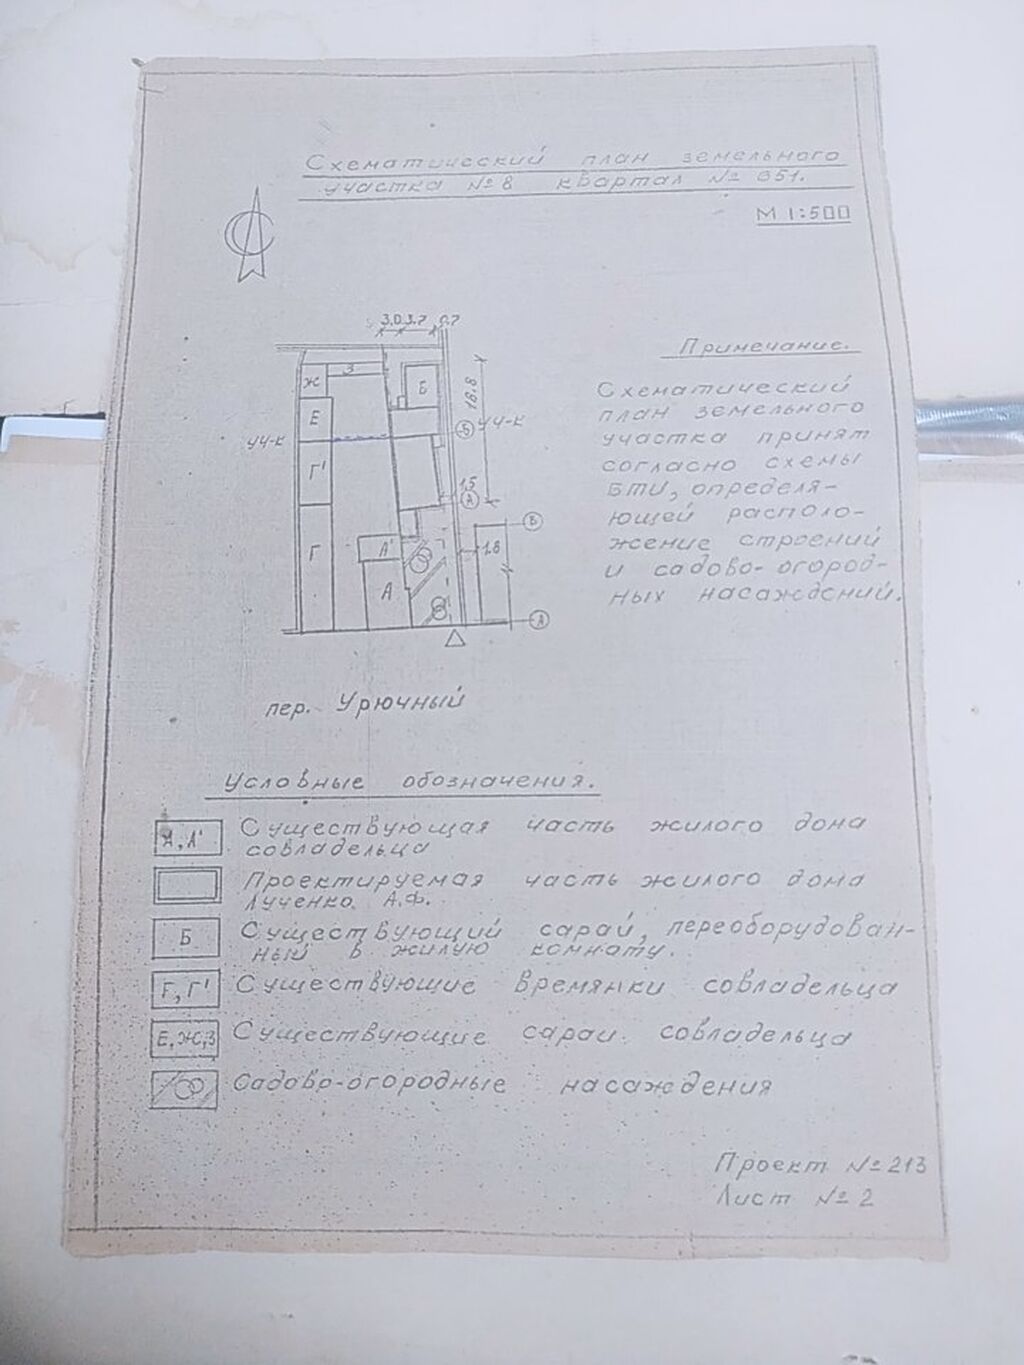 Схематический план земельного
участка №8 квартал № 651.
М 1:500
3.0 3.7 0.7
Примечание.
Схематический
план земельного
участка принят
согласно схемы
БТИ, определя-
ющей располо-
жение строений
и садово-огород-
ных насаждений.
Ж
З
Б
18.8
Е
уч-к
Б
уч-к
Г'
1.5
А
В
Г
А'
1.8
А
А
пер. Урючный
Условные обозначения.
А, А' Существующая часть жилого дома
совладельца
Проектируемая часть жилого дома
Лученко А.Ф.
Б Существующий сарай, переоборудован-
ный в жилую комнату.
Г, Г' Существующие времянки совладельца
Е,Ж,З Существующие сараи совладельца
Садово-огородные насаждения
Проект № 213
Лист № 2